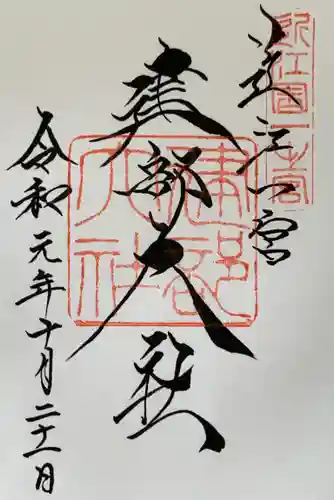 近江一宮
近江国一之宮
建部大社
建部大社
令和元年十月二十一日